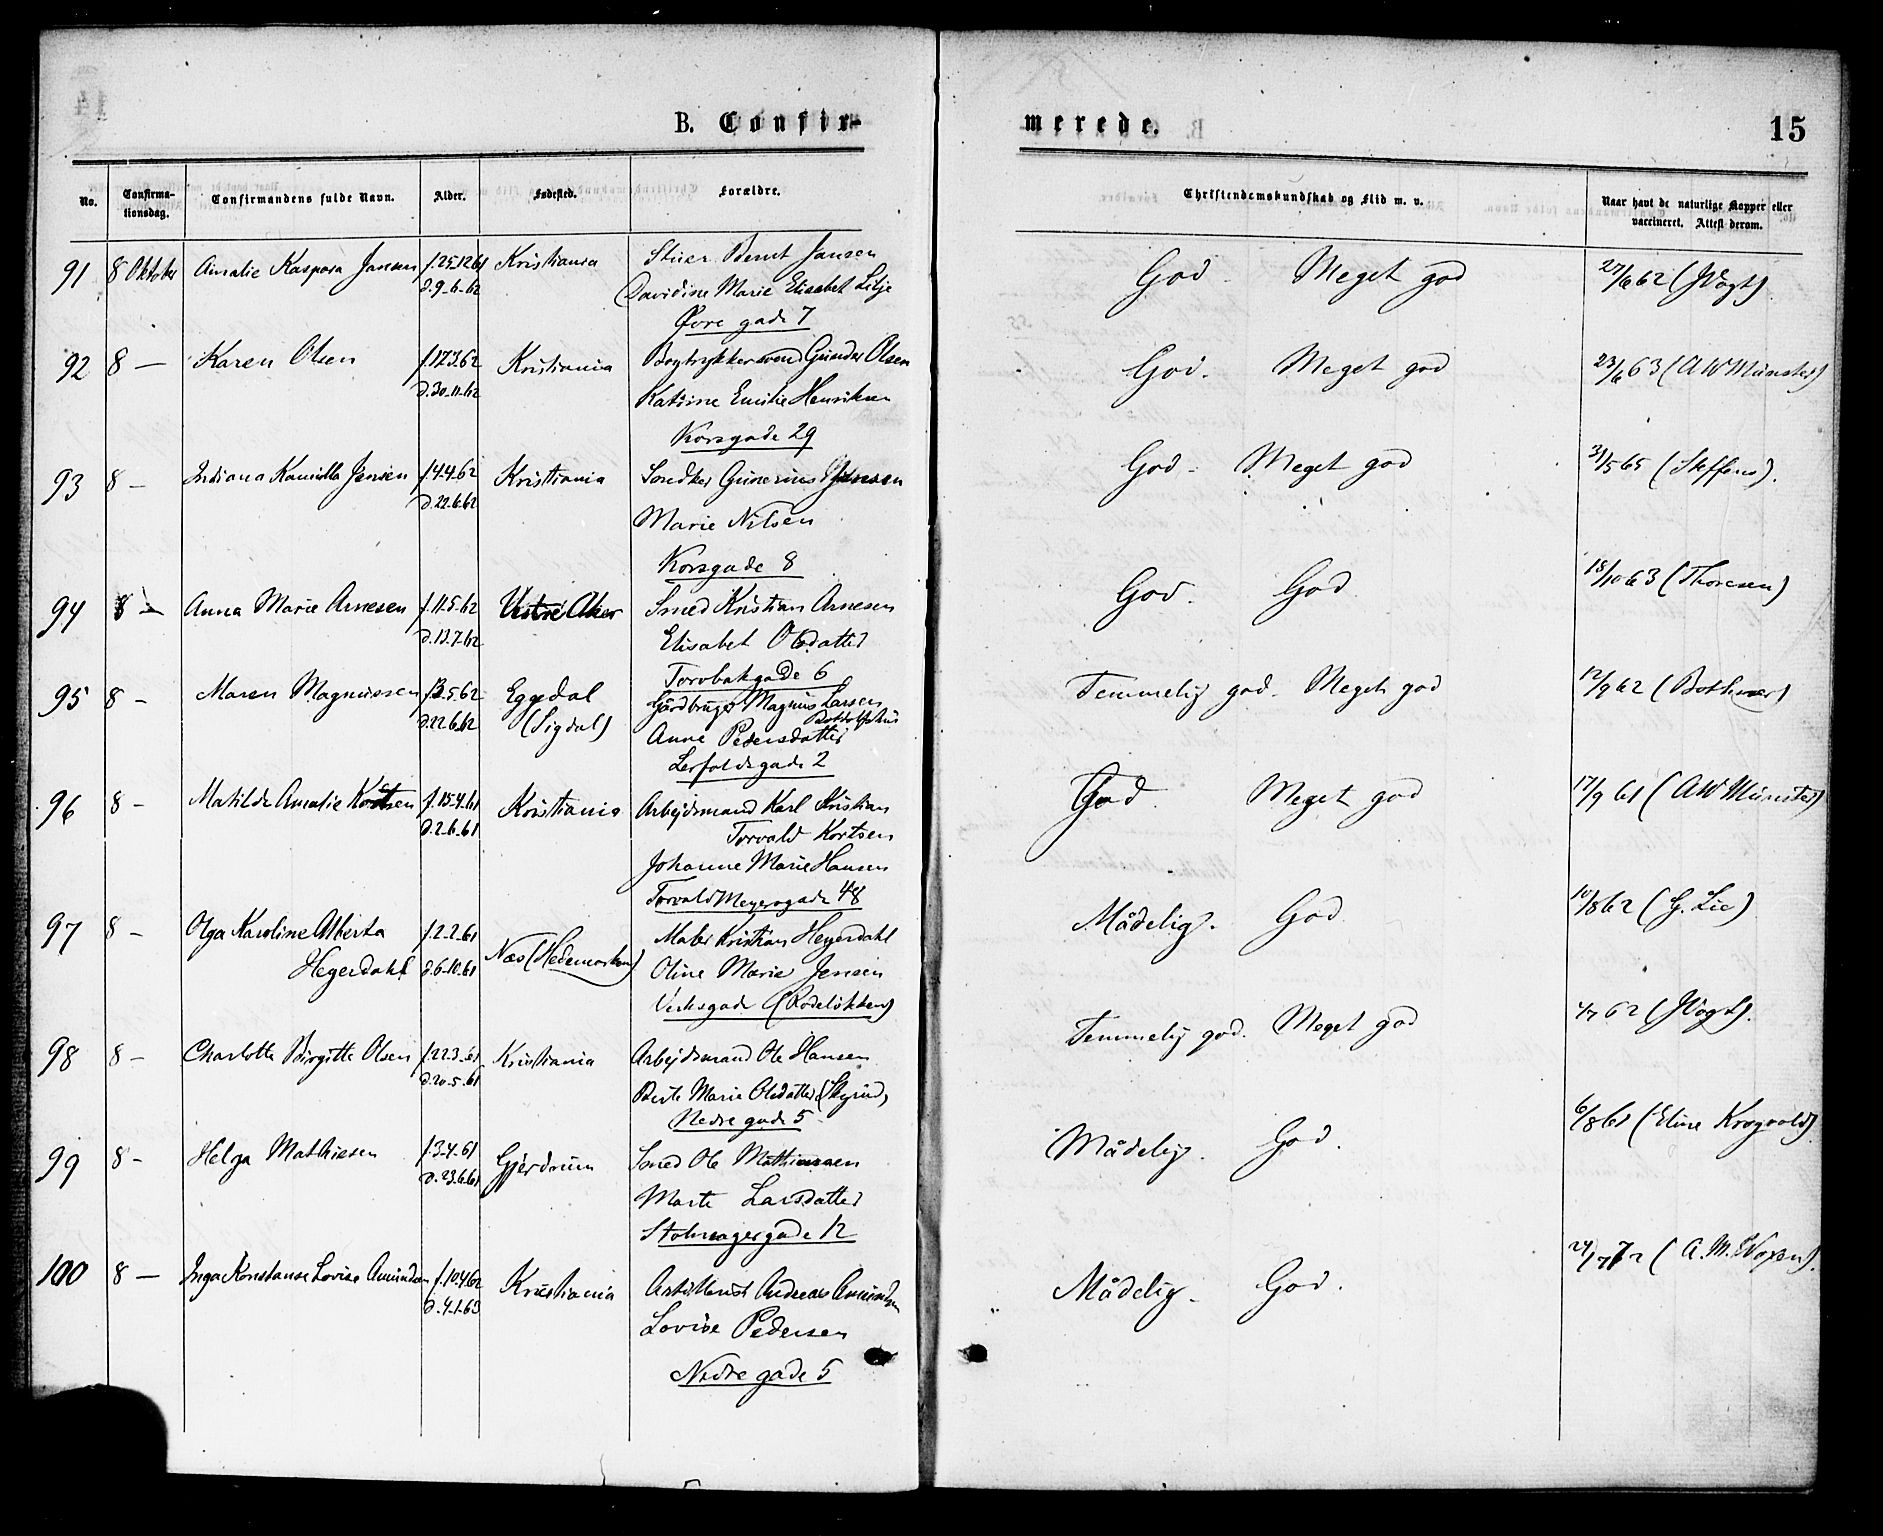 B. Confir-
merede.
15
No.
Confirma-
tionsdag.
Confirmandens fulde Navn.
Alder.
Fødested.
Forældre.
Christendomskundskab og Flid m. v.
Naar havt de naturlige Kopper eller
vaccineret. Attest derom.
91 8 Oktober Amalie Kaspara Jansen f.25.12.61 Kristiania Stuer Bernt Jansen God - Meget god 27/6 62 (J Vogt).
d.9-6-62 Davidine Marie Elisabet Lilje
Øvre gade 7
92 8 — Karen Olsen f.17.3.62 Kristiania Bogtrykkersvend Gunder Olsen God. Meget god 23/6 63 (A W Münster)
d.30-11-62 Katrine Emilie Henriksen
Korsgade 29
93 8 — Indiana Kamilla Jensen f.4.4.62 Kristiania Snedker Gunerius Jensen God - Meget god 31/5 65 (Steffens).
d.22.6.62 Marie Nilsen
Korsgade 8
94 8 — Anna Marie Arnesen f.11.5.62 Vestre Aker Smed Kristian Arnesen God. God 18/10 63 (Thoresen)
d.13.7.62 Elisabet Olsdatter
Torvbakgade 6
95 8 — Maren Magnussen f.13.5.62 Eggedal Gårdbruger Magnus Larsen Temmelig god. Meget god 12/9 62 (Bothner)
d.22.6.62 (Sigdal) Anne Pedersdatter
Lerfaldsgade 2
96 8 — Matilde Amalie Kortsen f.15-4.61 Kristiania Arbejdsmand Karl Kristian God. Meget god 17/9 61 (A W Münster)
d.2.6.61 Torvald Kortsen
Johanne Marie Hansen
Torvald Meyersgade 48
97 8 — Olga Karoline Alberta f.2-2-61 Næs (Hedemarken) Maler Kristian Heyerdahl Mådelig. God 10/8 62 (G. Lie)
Heyerdahl d.6-10.61 Oline Marie Jensen
Verksgade (Rodeløkken)
98 8 — Charlotte Birgitte Olsen f.22.3-61 Kristiania Arbejdsmand Ole Hansen Temmelig god. Meget god 4/7 62 (J Vogt).
d.20-5-61 Berte Marie Olsdatter (Skjrud)
Nedre gade 5
99 8 — Helga Mathiesen f.3-4-61 Gjerdrum Smed Ole Mathiesen Mådelig. God. 6/8 61 (Eline Krogvold)
d.23.6.61 Marte Larsdatter
Stolmagergade 12
100 8 — Inga Konstanse Lovise Amundsen f.10.4.62 Kristiania Artillerist Andreas Amundsen Mådelig - God. 24/7 72 (A. M. Woxen).
d.4-1-63 Lovise Pedersen
Nedre gade 5